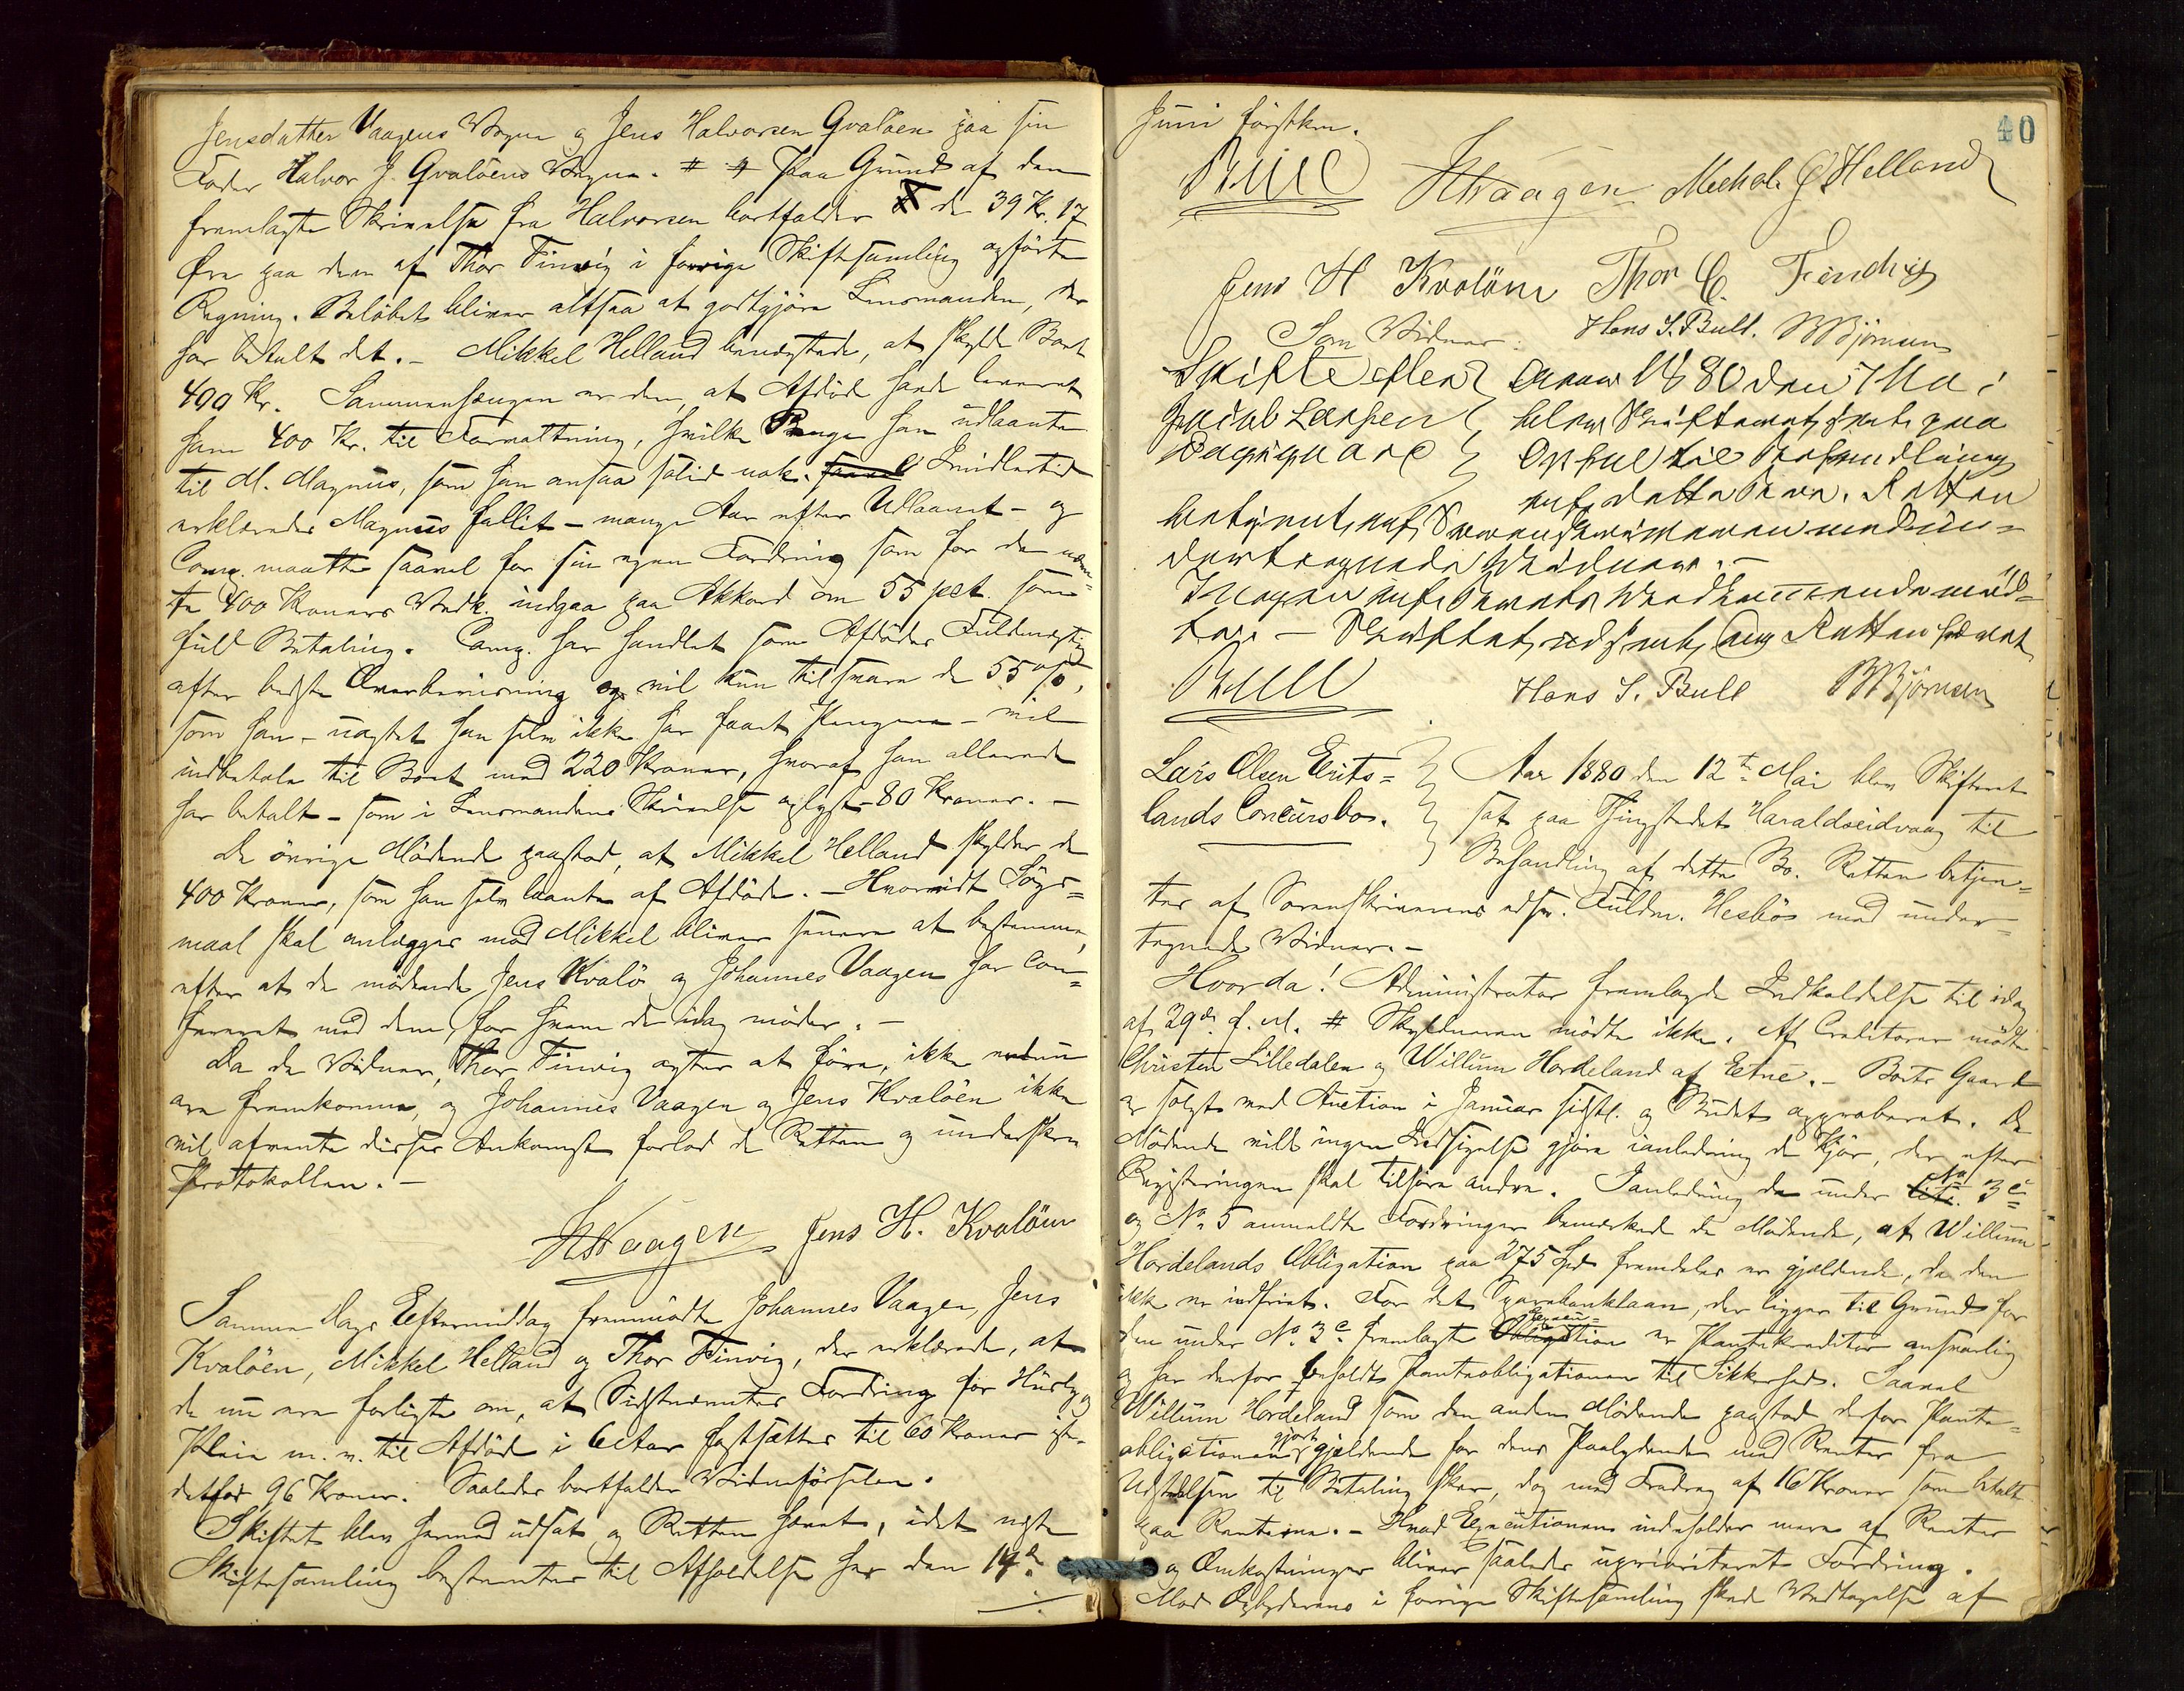 Jensdatter Vaagens Vegne og Jens Halvorsen Gvaløen paa sin
Fader Halvor J. Gvaløens Vegne. # # Paa Grund af den
fremlagte Skrivelse fra Halvorsen bortfalder de 39 Kr. 17
Øre paa den af Thor Finvig i forrige Skiftesamling opførte
Regning. Beløbet bliver altsaa at godtgjøre Lensmanden, der
har betalt det. – Mikkel Helland benægtede, at skylde Boet
400 Kr. Sammenhængen er den, at Afdøde havde leveret
ham 400 Kr. til Forvaltning, hvilke Penge han udlaante
til M. Magnus, som han ansaa solid nok. Imidlertid
erklæredes Magnus fallit – mange Aar efter Udlaanet – og
Comp. maatte saavel for sin egen Fordring som for de nævn-
te 400 Kroners Vedk. indgaa paa Akkord om 55 pct. som
fuld Betaling. Comp. har handlet som Afdødes Fuldmægtig
efter bedste Overbevisning og vil kun tilsvare de 55 %,
som han – uagtet han selv ikke har faaet Pengene – vil
indbetale til Boet med 220 Kroner, hvoraf han allerede
har betalt – som i Lensmandens Skrivelse oplyst – 80 Kroner. –
De øvrige Mødende paastod, at Mikkel Helland skylder de
400 Kroner, som han selv laante af Afdøde. – Hvorvidt Søgs-
maal skal anlægges mod Mikkel bliver senere at bestemme,
efter at de mødende Jens Kvalø og Johannes Vaagen har con-
fereret med dem, for hvem de idag møder. –
Da de Vidner, Thor Finvig agter at føre, ikke endnu
ere fremkomne, og Johannes Vaagen og Jens Kvaløen ikke
vil afvente disses Ankomst forlod de Retten og underskrev
Protokollen. –
JHVaagen Jens H. Kvaløen
Samme Dags Eftermiddag fremmødte Johannes Vaagen, Jens
Kvaløen, Mikkel Helland og Thor Finvig, der erklærede, at
de nu ere forligte om, at Sidstnævntes Fordring for Husly og
Pleie m. v. til Afdøde i 6 Aar fastsættes til 60 Kroner iste-
detfor 96 Kroner. Saaledes bortfalder Vidneførselen.
Skiftet blev hermed udsat og Retten hævet, idet næste
Skiftesamling bestemtes til Afholdelse her den 14de
40
Juni førstkm.
Bull JHVaagen Mechal J Helland
Jens H Kvaløen Thor C. Findvig
Som Vidner: Hans S. Bull. MBjørnsen
Skifte efter Anno 1880 den 7 Mai
Jacob Larsen blev Skifteret sat paa
Opsal til Behandling
af dette Bo. Retten
betjent af Sorenskriveren med un-
dertegnede Vidner. –
Ingen af Boets Vedkommende mød-
te. – Skiftet udsat, og Retten hævet
Bull Hans S. Bull MBjørnsen
Lars Olsen Erits- Aar 1880 den 12te Mai blev Skifteret
lands Concursbo. sat paa Thingstedet Haraldseidvaag til
Behandling af dette Bo. Retten betjen-
tes af Sorenskriverens edsv. Fuldm. Hesbøe med under-
tegnede Vidner. –
Hvorda! Administrator fremlagde Indkaldelse til idag
af 29de f. M. # Skyldneren mødte ikke. Af Creditorer mødte
Christen Lilledalen og Willum Hordeland af Etne. – Boets Gaard
er solgt ved Auction i Januar sidstl. og Budet approberet. De
Mødende vilde ingen Indsigelse gjøre ianledning de Kjør, der efter
Registeringen skal tilhøre andre. Ianledning de under No 3c
og No 5 anmeldte Fordringer bemærkede de Mødende, at Willum
Hordelands Obligation paa 275 Spd fremdeles er gjældende, da den
ikke er indfriet. For det Sparebanklaan, der ligger til Grund for
den under No 3c fremlagte er Pantekreditor ansvarlig
og har derfor beholdt Panteobligationen til Sikkerhed. Saavel
Willum Hordeland som den anden Mødende paastod derfor Pante-
obligationen gjort gjældende for dens Paalydende med Renter fra
Udstedelsen til Betaling sker, dog med Fradrag af 16 Kroner som betalt
paa Renterne. – Hvad Executionen indeholder mere af Renter
og Omkostninger bliver saaledes uprioriteret Fordring.
Mod Opbyderens i forrige Skiftesamling skede Vedtagelse af